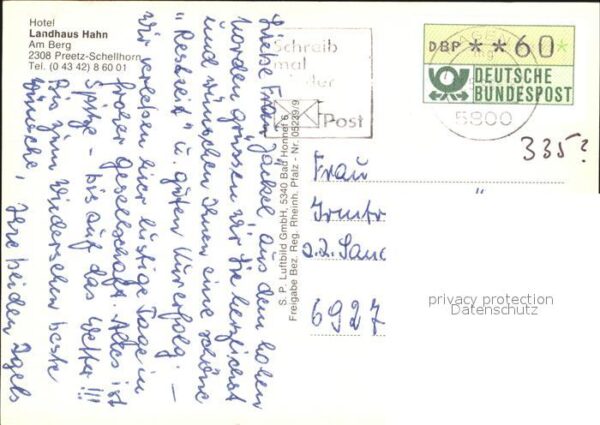 Hotel
Landhaus Hahn
Am Berg
2308 Preetz-Schellhorn
Tel. (0 43 42) 8 60 01
Liebe Frau Jäckel, aus dem hohen
Norden grüssen wir Sie herzlichst
und wünschen Ihnen eine schöne
"Restzeit" u. guten Kurerfolg. —
Wir verleben hier lustige Tage in
froher Gesellschaft. Alles ist
Spitze - bis auf das Wetter!!!
Bis zum Wiedersehen beste
Wünsche, Ihre beiden Igels
S. P. Luftbild GmbH, 5340 Bad Honnef 6
Freigabe Bez. Reg. Rheinh. Pfalz - Nr. 05229/9
Schreib
mal
wieder
Post
5800
DBP **60*
DEUTSCHE
BUNDESPOST
335?
Frau
Irmtr
z.Z. Sanc
6927
privacy protection
Datenschutz